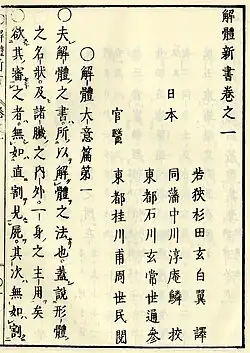 解體新書卷之一
若狹杉田玄白翼 譯
日本 同藩中川淳庵鱗 挍
東都石川玄常世通 參
官醫 東都桂川甫周世民 閱
〇解體大意篇第一
〇夫解體之書所以解體之法也蓋說形體
之名狀及諸臟之内外一身之主用矣
欲其審之者無如直割見屍其次無如割